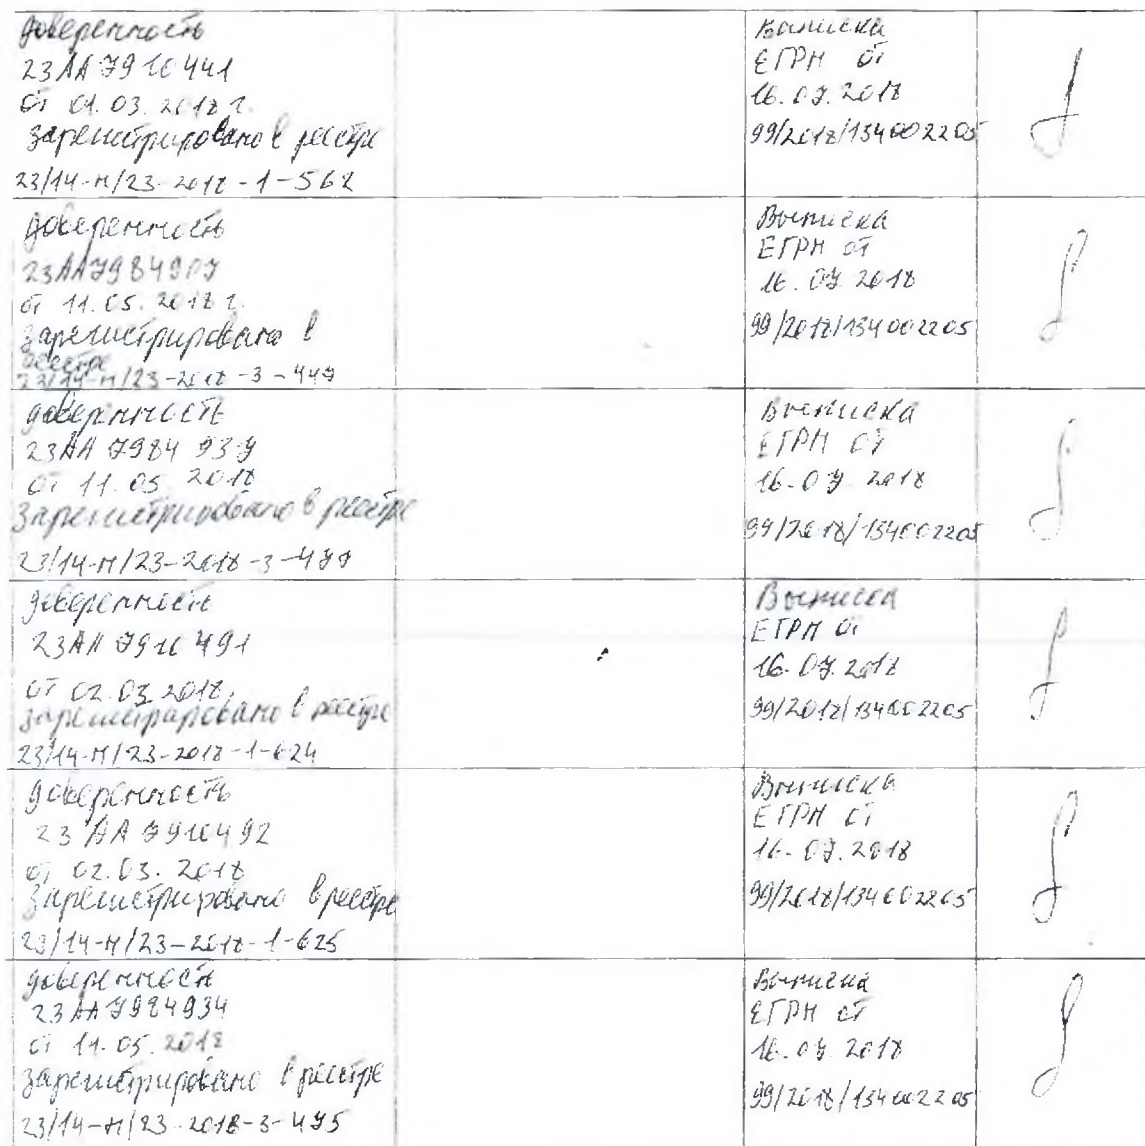 доверенность
23АА7910441
от 01.03.2018 г.
зарегистрировано в реестре
23/14-н/23-2018-1-562
Выписка
ЕГРН от
16.07.2018
99/2018/134002205
доверенность
23АА7984907
от 11.05.2018 г.
зарегистрировано в
реестре
23/14-н/23-2018-3-447
Выписка
ЕГРН от
16.07.2018
99/2018/134002205
доверенность
23АА 7984 937
от 11.05 2018
зарегистрировано в реестре
23/14-н/23-2018-3-477
Выписка
ЕГРН от
16.07 2018
99/2018/134002205
доверенность
23АА 7910491
от 02.03 2018
зарегистрировано в реестре
23/14-н/23-2018-1-624
Выписка
ЕГРН от
16.07.2018
99/2018/134002205
доверенность
23 АА 7910492
от 02.03.2018
зарегистрировано в реестре
23/14-н/23-2018-1-625
Выписка
ЕГРН от
16.07.2018
99/2018/134002205
доверенность
23АА7984934
от 11.05.2018
зарегистрировано в реестре
23/14-н/23-2018-3-475
Выписка
ЕГРН от
16.07 2018
99/2018/134002205